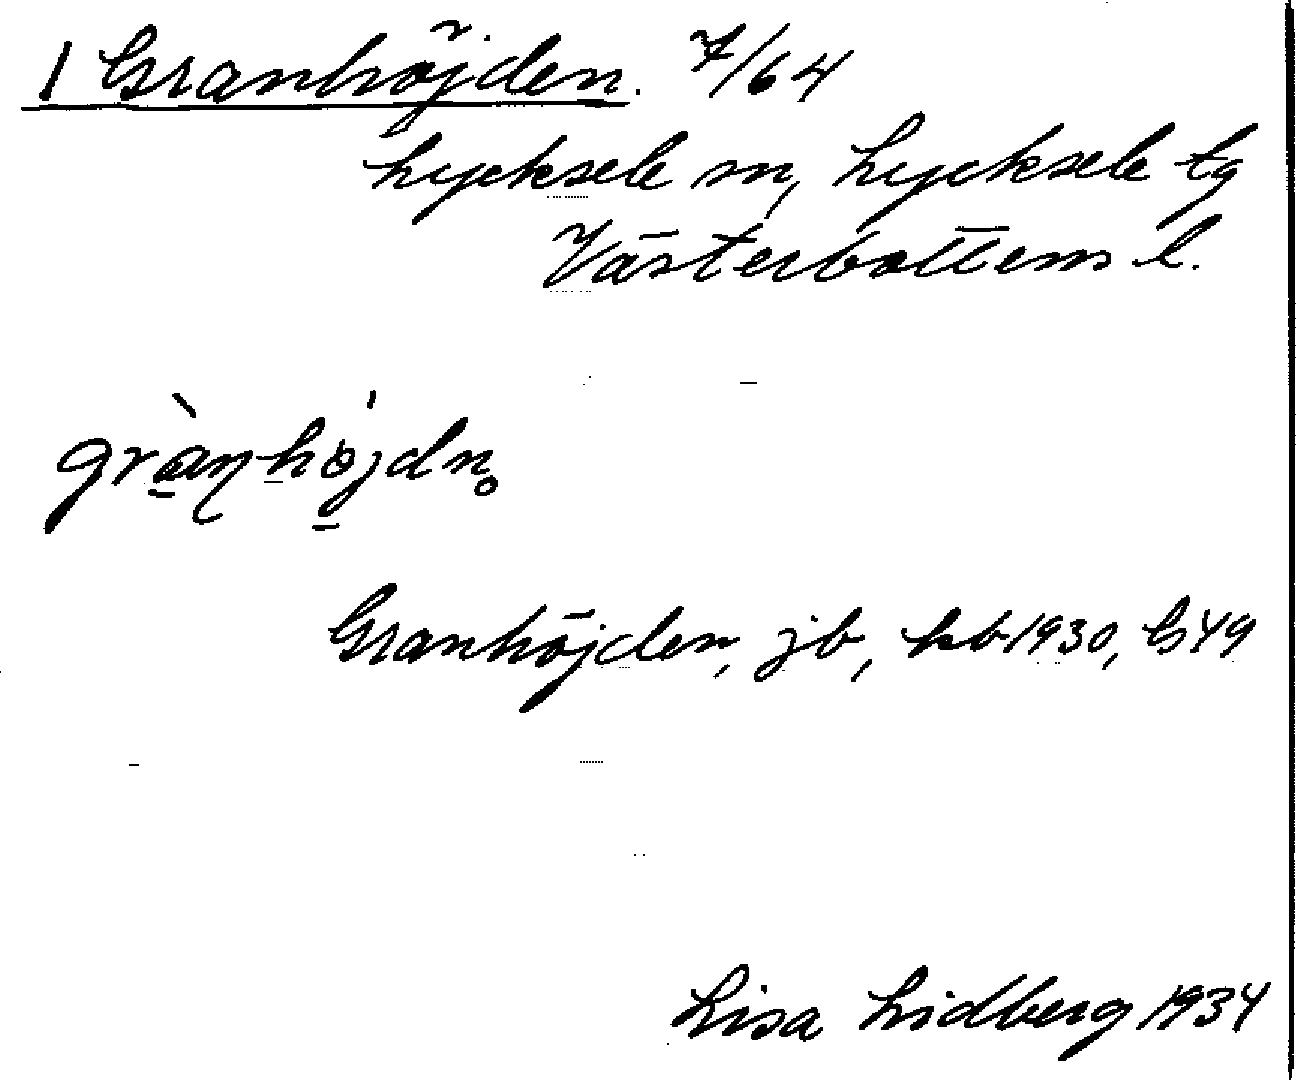 1 Granhöjden. 7/64
Lycksele sn, Lycksele tg
Västerbottens l.
gràn̥hö́jdn̥
Granhöjden, jb, kb 1930, GS 49
Lisa Lidberg 1934